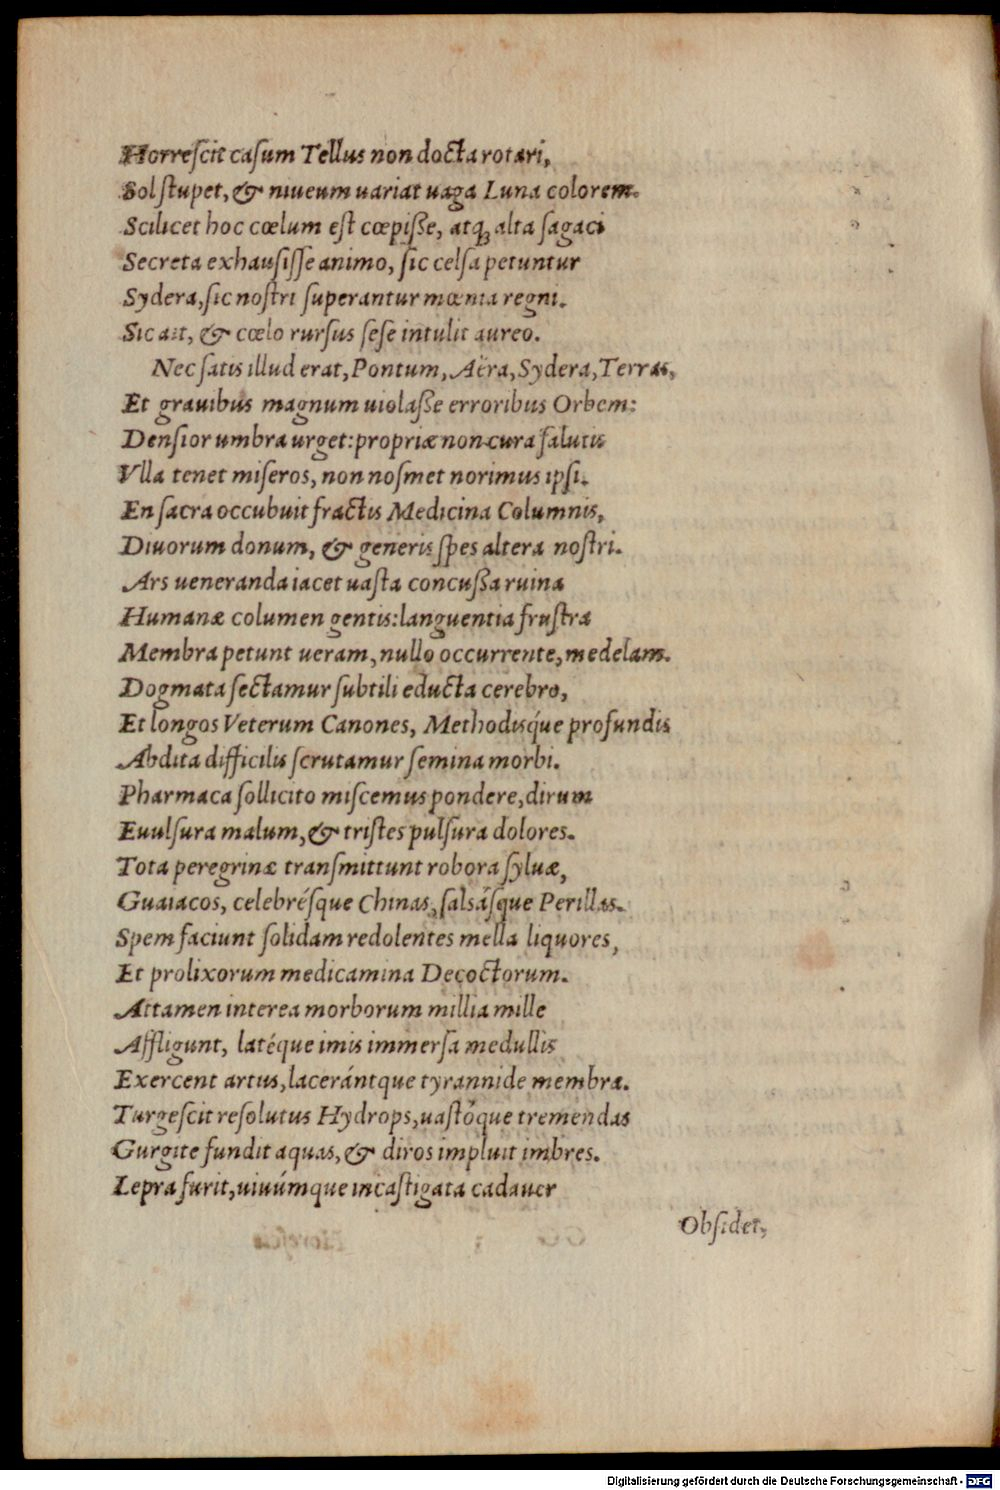 Horreſcit caſum Tellus non docta rotari,
Sol ſtupet, & niueum uariat uaga Luna colorem.
Scilicet hoc cœlum eſt cœpiſſe, atq; alta ſagaci
Secreta exhauſiſſe animo, ſic celſa petuntur
Sydera, ſic noſtri ſuperantur mœnia regni.
Sic ait, & cœlo rurſus ſeſe intulit aureo.
Nec ſatis illud erat, Pontum, Aëra, Sydera, Terras,
Et grauibus magnum uiolaſſe erroribus Orbem:
Denſior umbra urget: propriæ non cura ſalutis
Vlla tenet miſeros, non noſmet norimus ipſi.
En ſacra occubuit fractis Medicina Columnis,
Diuorum donum, & generis ſpes altera noſtri.
Ars ueneranda iacet uaſta concuſſa ruina
Humanæ columen gentis: languentia fruſtra
Membra petunt ueram, nullo occurrente, medelam.
Dogmata ſectamur ſubtili educta cerebro,
Et longos Veterum Canones, Methodisq́ue profundis
Abdita difficilis ſcrutamur ſemina morbi.
Pharmaca ſollicito miſcemus pondere, dirum
Euulſura malum, & triſtes pulſura dolores.
Tota peregrinæ tranſmittunt robora ſyluæ,
Guaiacos, celebréſque Chinas, ſalsáſque Perillas.
Spem faciunt ſolidam redolentes mella liquores,
Et prolixorum medicamina Decoctorum.
Attamen interea morborum millia mille
Affligunt, latéque imis immerſa medullis
Exercent artus, laceràntque tyrannide membra.
Turgeſcit reſolutus Hydrops, uaſtóque tremendas
Gurgite fundit aquas, & diros impluit imbres.
Lepra furit, uiuúmque incaſtigata cadauer
Obſidet,
Digitalisierung gefördert durch die Deutsche Forschungsgemeinschaft - DFG